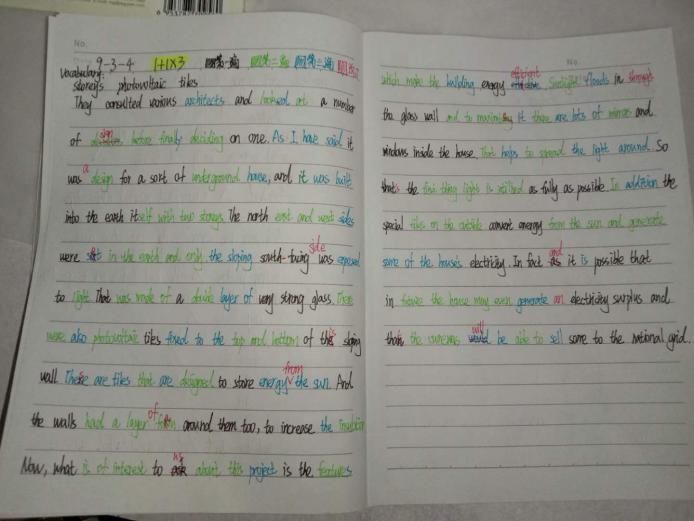 No.
9-3-4 1+1×3
Vocabulary:
storeys photovoltaic tiles
They consulted various architects and looked at a number
of design before finally deciding on one. As I have said it
was a design for a sort of underground house, and it was built
into the earth itself with two storeys. The north east and west sides
were set in the earth and only the sloping south-facing side was exposed
to light. That was made of a double layer of very strong glass. There
were also photovoltaic tiles fixed to the top and bottom of this sloping
wall. These are tiles that are designed to store energy from the sun. And
the walls had a layer of around them too, to increase the
Now, what is of interest to us about this project is the features
No.
which make the building energy efficient Sunlight floods in through
the glass wall and to maximise it there are lots of mirror and
windows inside the house. That helps to spread the light around. So
that's the first thing light is utilised as fully as possible. In addition the
special tiles on the outside convert energy from the sun and generate
some of the houses electricity. In fact and it is possible that
in future the house may even generate an electricity surplus and
that the owners will be able to sell some to the national grid.